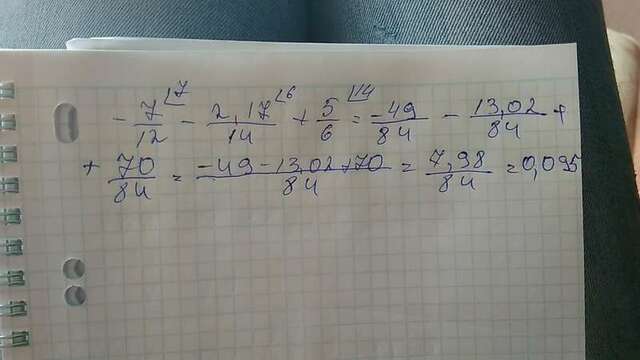 - 7/12 ⌞7 - 2,17/14 ⌞6 + 5/6 ⌞14 = -49/84 - 13,02/84 +
+ 70/84 = -49-13,02+70/84 = 7,98/84 = 0,095